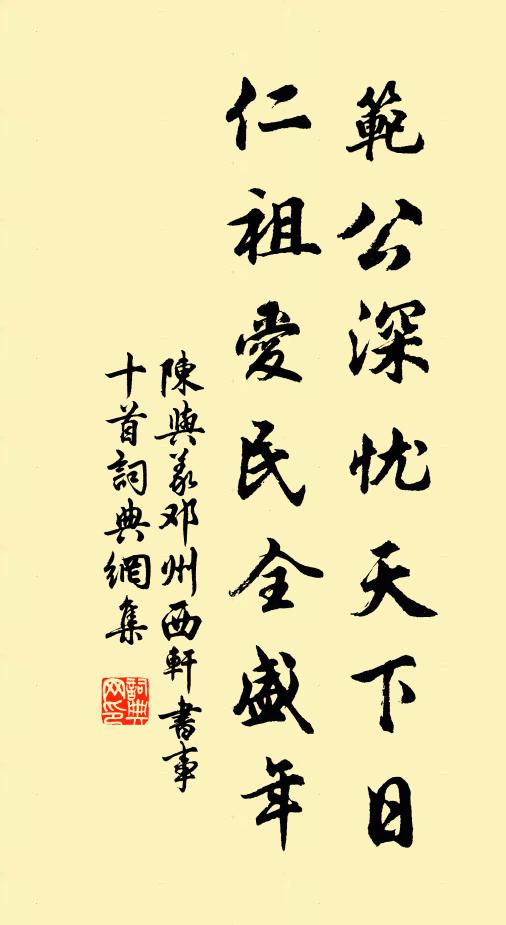 範公深忧天下日
仁祖愛民全盛年
陳與義邓州西軒書事
十首詞典網集
詞典
网印